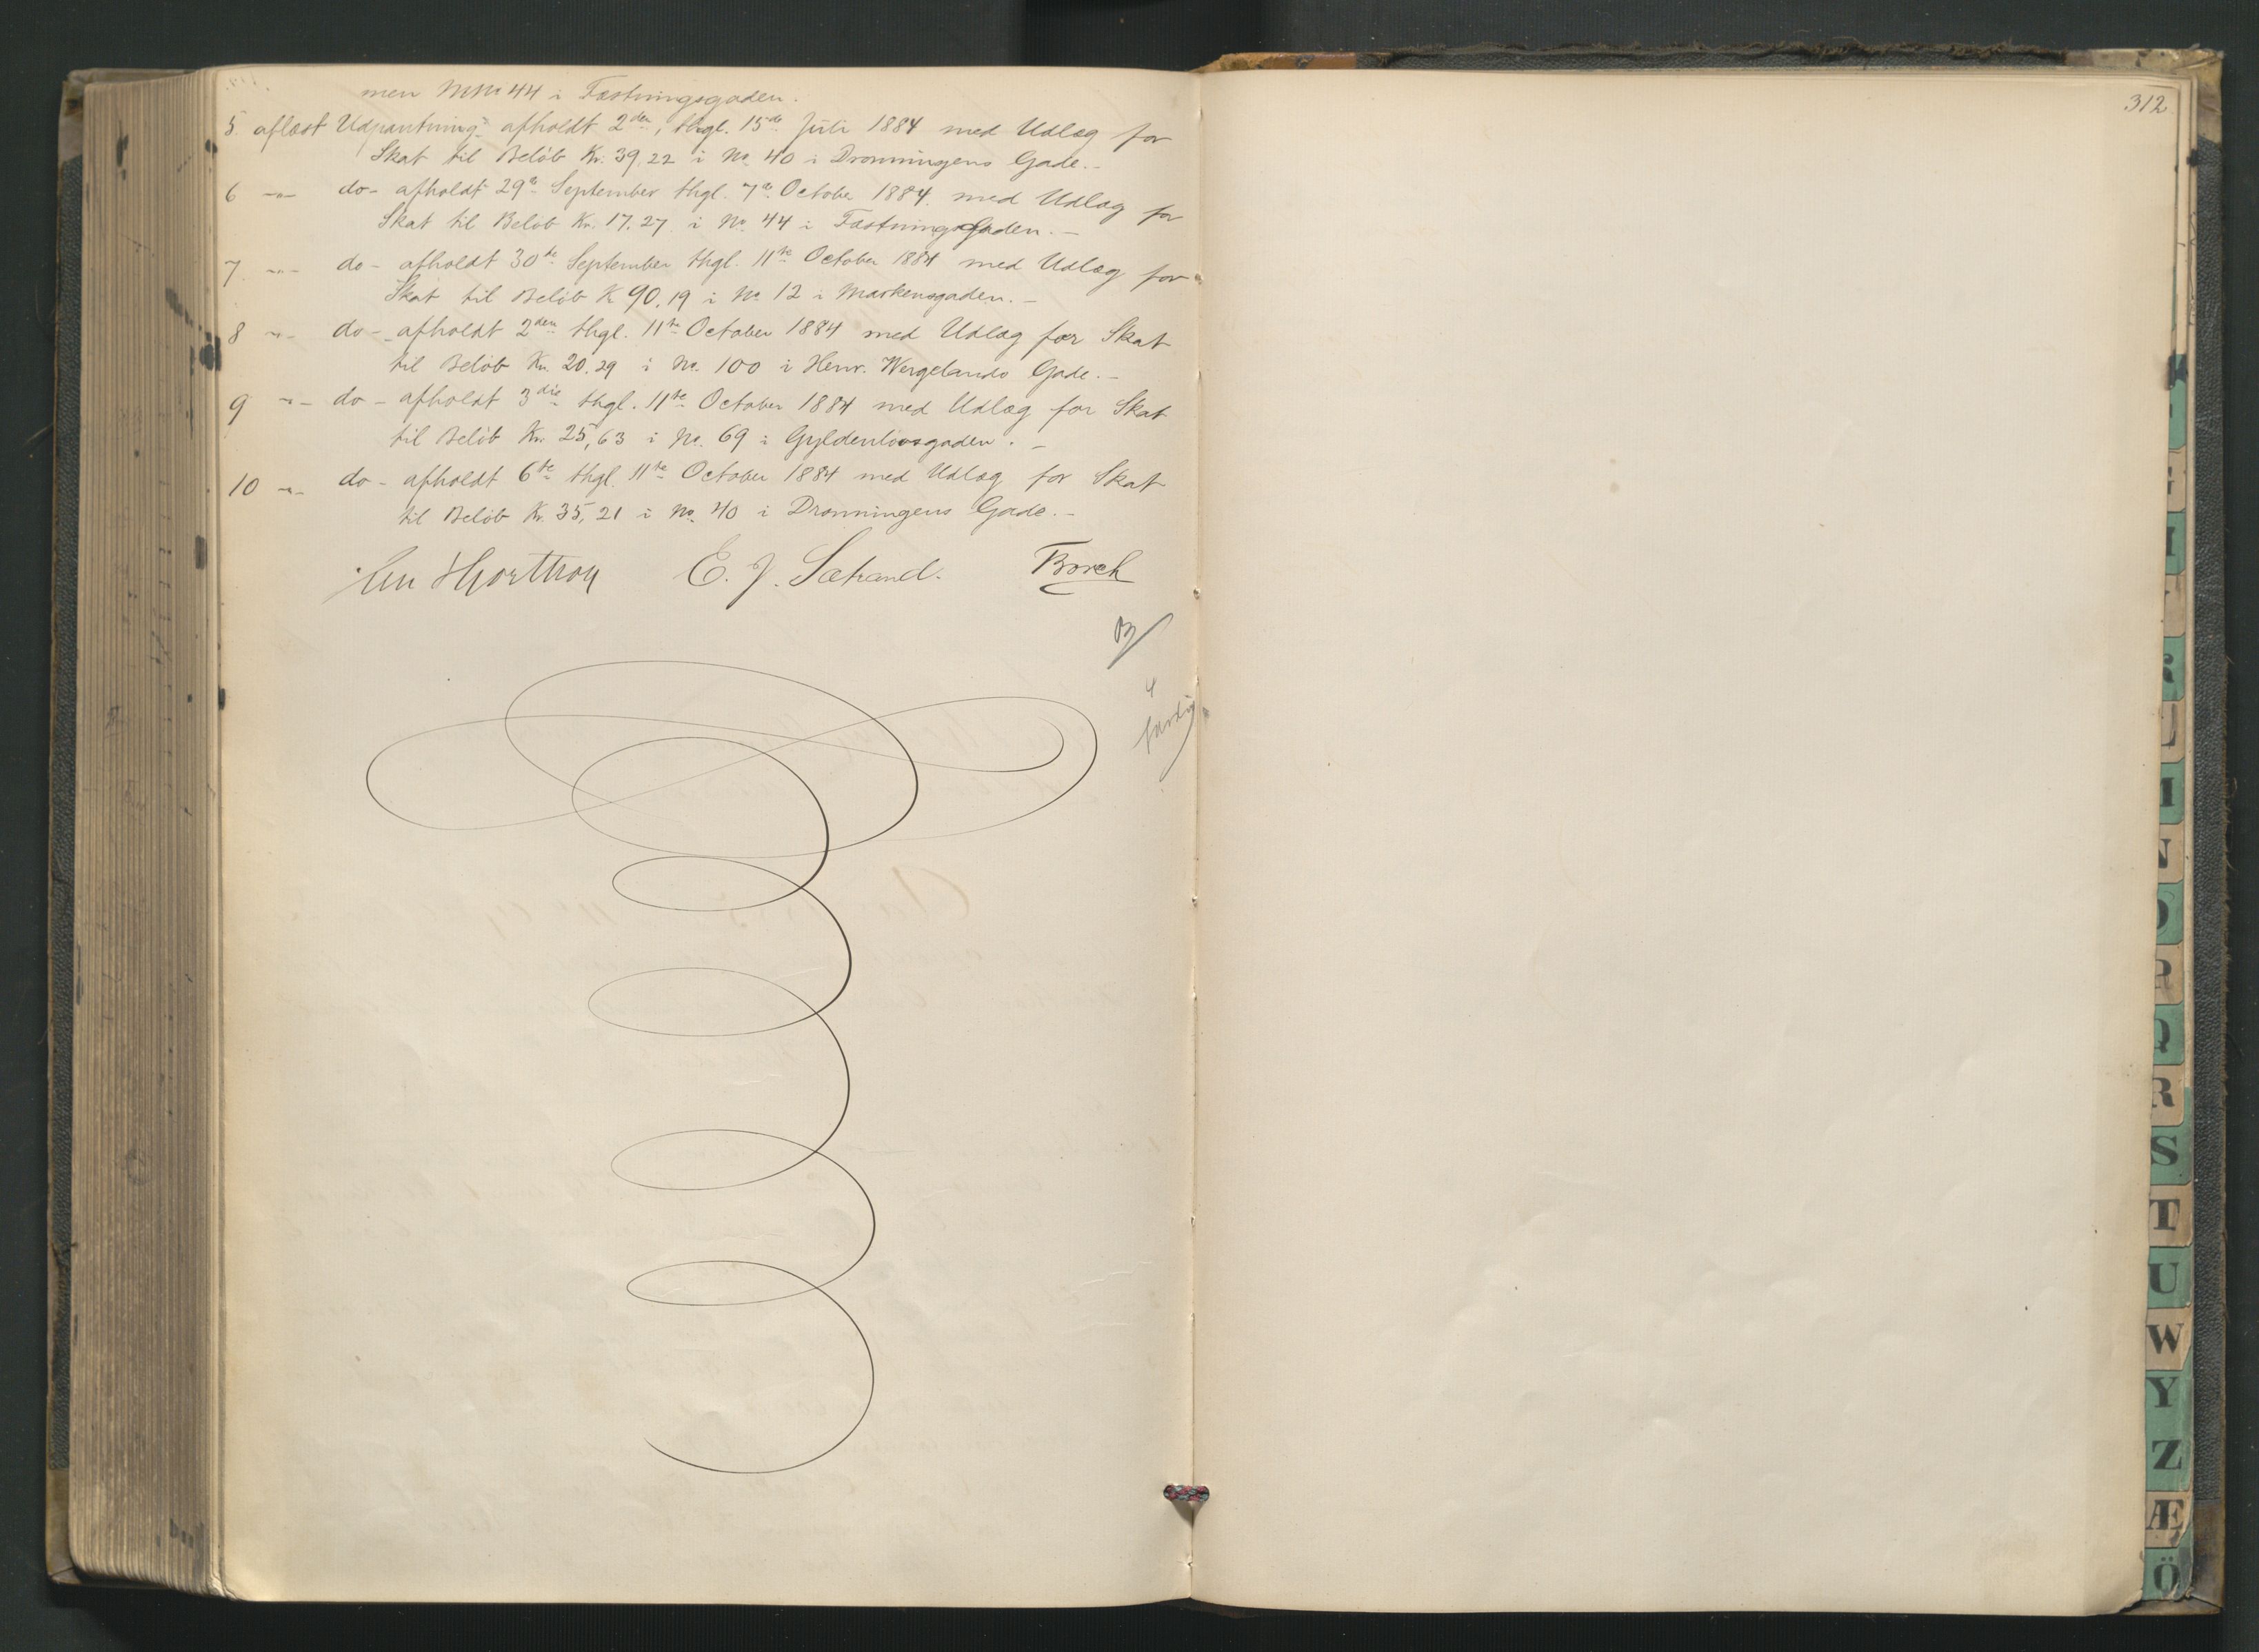 men MNo 44 i Fæstningsgaden.
5 aflæst Udpantning afholdt 2den, thgl. 15de Juli 1884 med Udlæg for
Skat til Beløb Kr. 39,22 i No. 40 i Dronningens Gade.-
6 -"- do- afholdt 29de September thgl. 7de October 1884. med Udlæg for
Skat til Beløb Kr. 17.27 i No. 44 i Fæstningsgaden.-
7 -"- do- afholdt 30te September thgl. 11te October 1884 med Udlæg for
Skat til Beløb K 90,19 i No 12 i Markensgaden.-
8 -"- do- afholdt 2den thgl. 11te October 1884 med Udlæg for Skat
til Beløb Kr. 20.29 i No. 100 i Henr. Wergelands Gade.-
9 -"- do- afholdt 3die thgl. 11te October 1884 med Udlæg for Skat
til Beløb Kr. 25,63 i No. 69 i Gyldenløvsgaden.-
10 -"- do- afholdt 6te thgl. 11te October 1884 med Udlæg for Skat
til Beløb Kr. 35,21 i No. 40 i Dronningens Gade.-
E. J. Sætrand. Borch
312
S
T
U
W
Y
Z
Æ
Ö